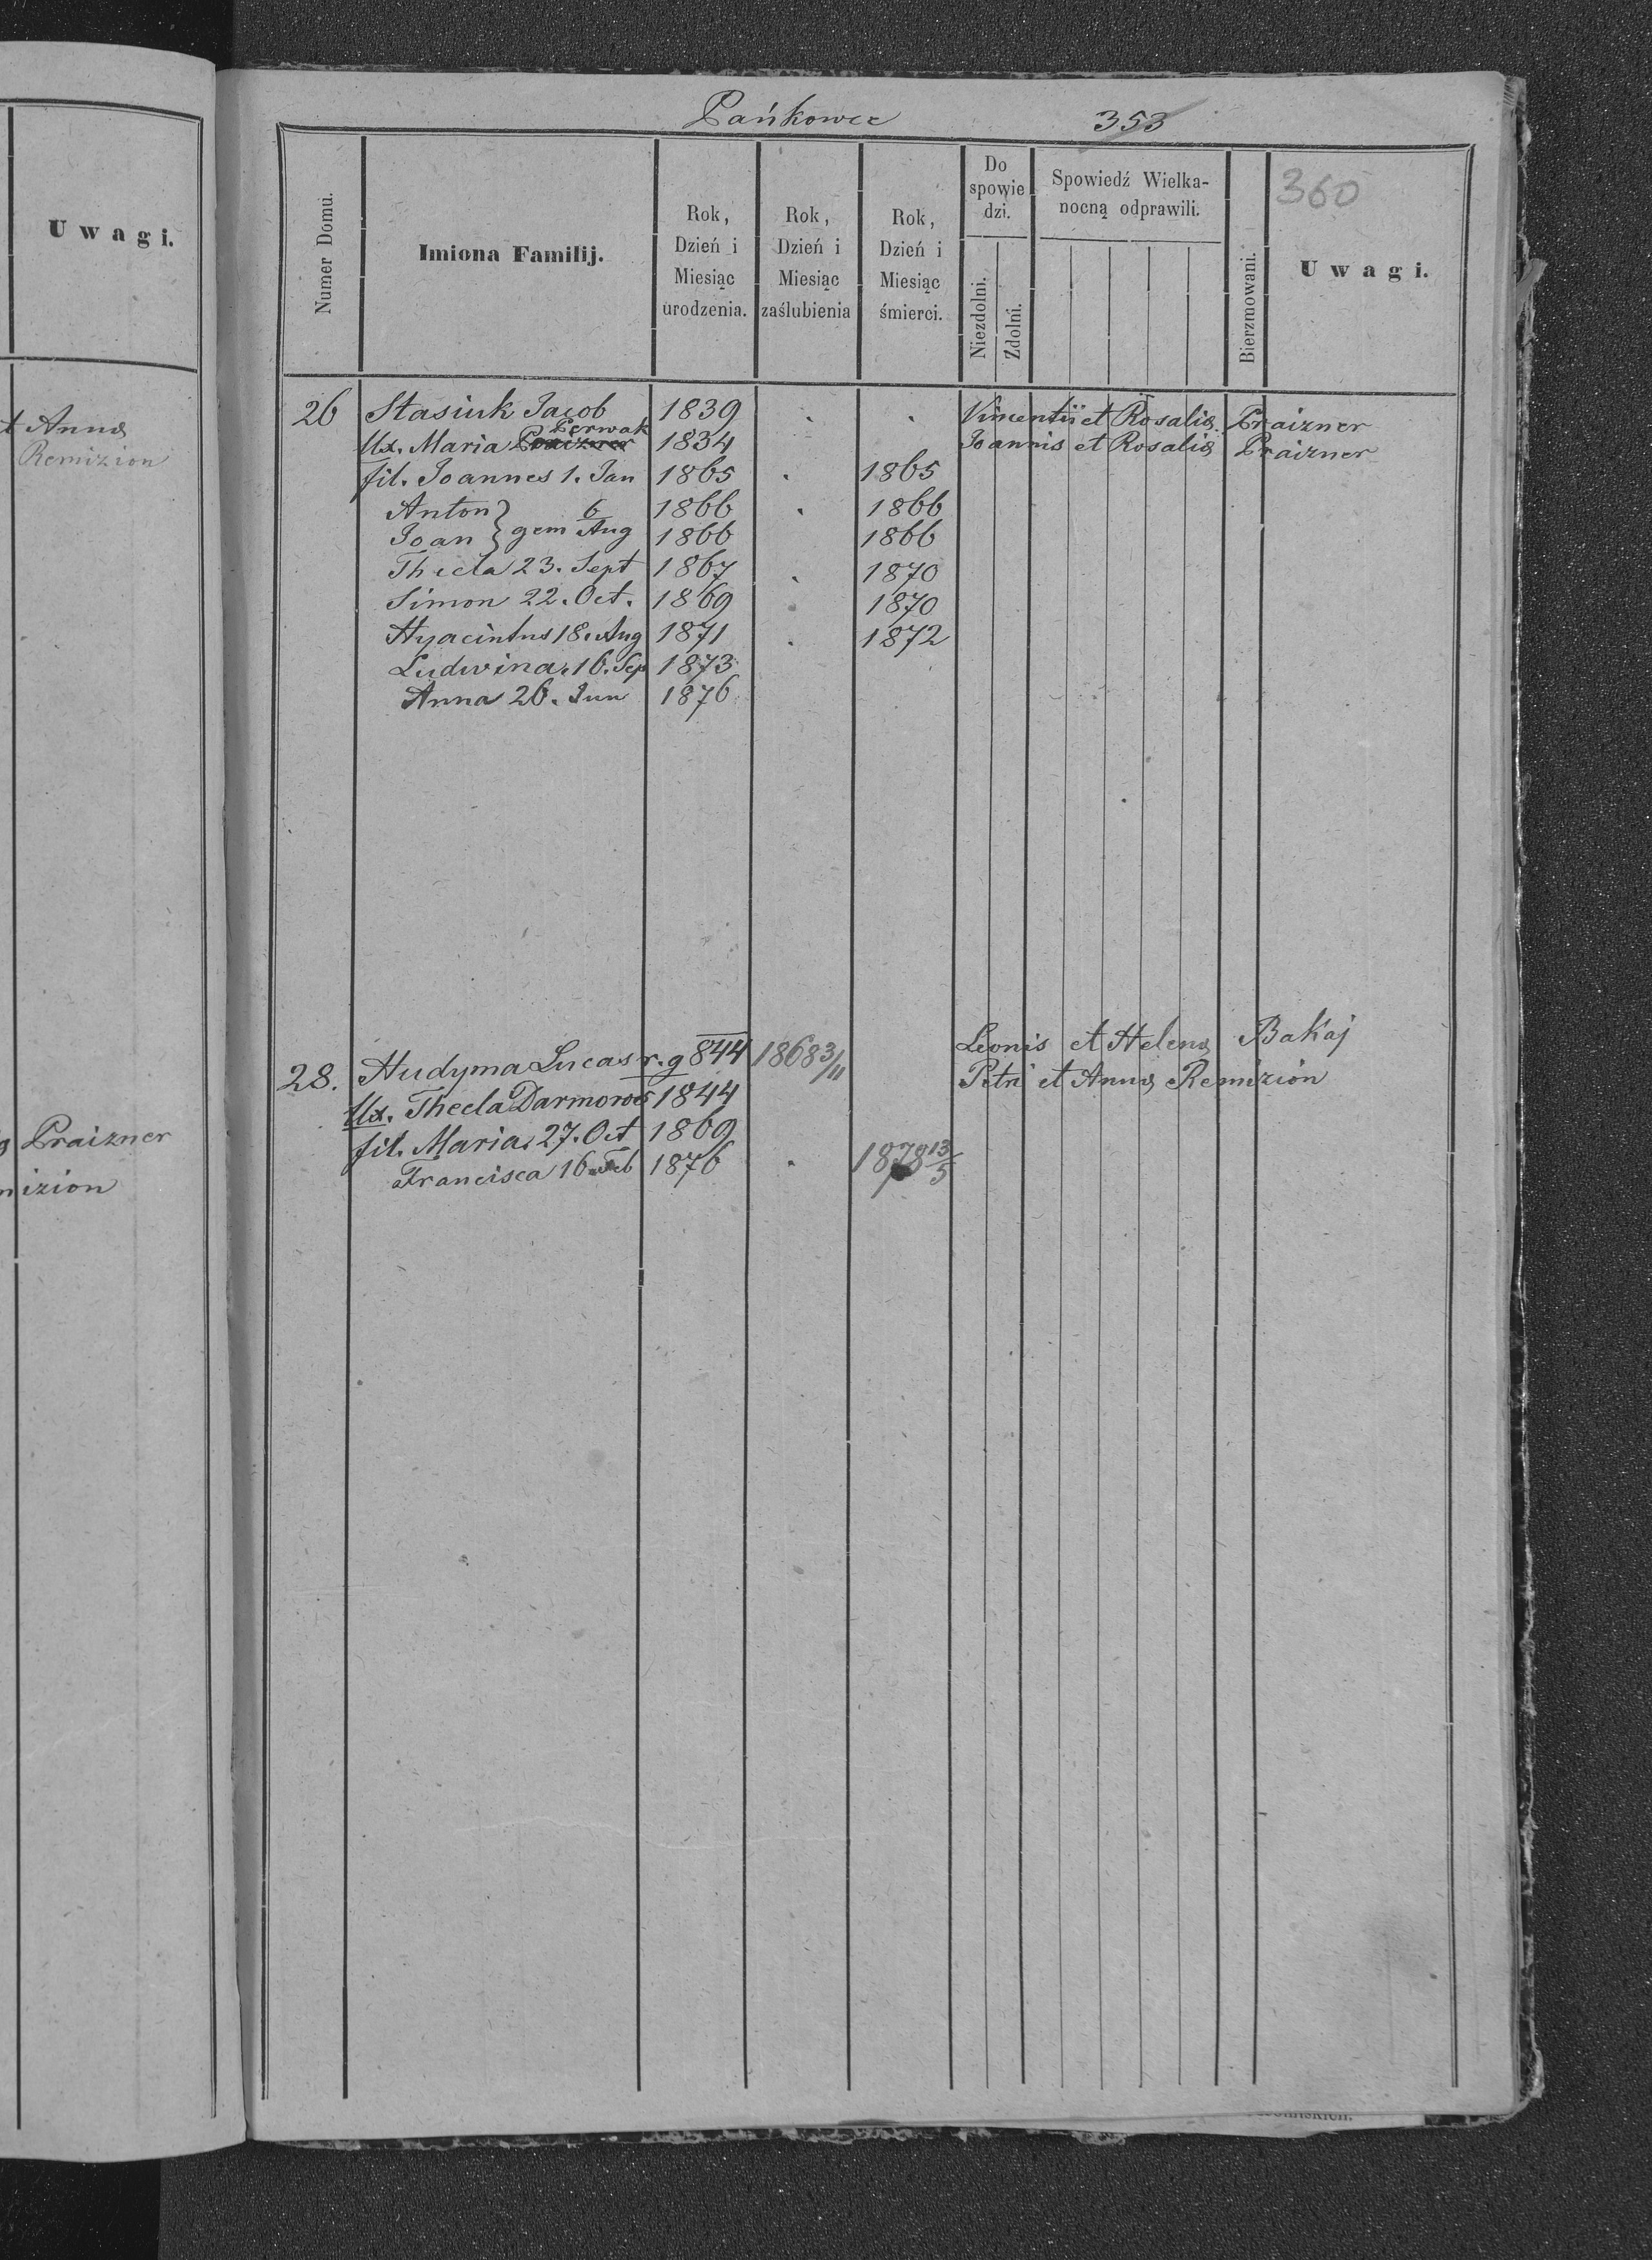 U w a g i.
t Annæ
Remizion
Praizner
izion
Pańkowce 353
360
Numer Domu.
Imiona Familij.
Rok,
Dzień i
Miesiąc
urodzenia.
Rok,
Dzień i
Miesiąc
zaślubienia
Rok,
Dzień i
Miesiąc
śmierci.
Do
spowie
dzi.
Niezdolni.
Zdolni.
Spowiedź Wielka-
nocną odprawili.
Bierzmowani.
U w a g i.
26 Stasiuk Jacob 1839 . . Vincentii et Rosaliæ Praizner
Perwak
Ux. Maria Praizner 1834 Joannis et Rosaliæ Praizner
fil. Joannes 1. Jan 1865 . 1865
Anton } gem 6 1866 . 1866
Joan } Aug 1866 1866
Thecla 23. Sept 1867 . 1870
Simon 22. Oct. 1869 . 1870
Hyacintus 18. Aug 1871 . 1872
Ludwina 16. Sep 1873
Anna 26. Jun 1876
28. Hudyma Lucas r. g 844 1868 3/11 Leonis et Helenæ Bakaj
Ux. Thecla Darmoros 1844 Petri et Annæ Remizion
fil. Maria 27. Oct 1869
Francisca 16. Feb 1876 . 1878 13/5